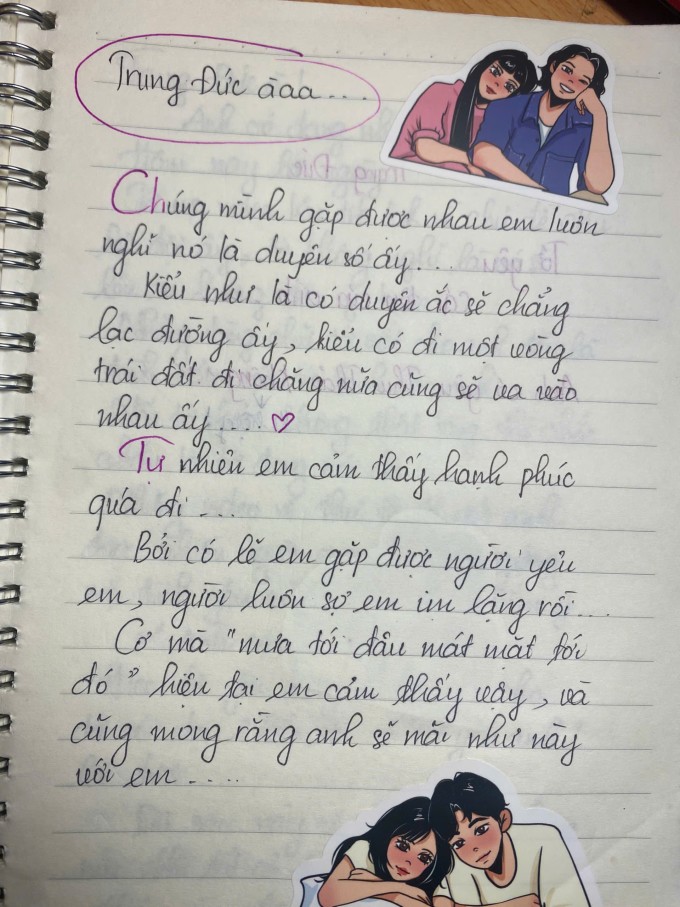 Trung Đức àaa....
Chúng mình gặp được nhau em luôn
nghĩ nó là duyên số ấy...
Kiểu như là có duyên ắc sẽ chẳng
lạc đường ấy, kiểu có đi một vòng
trái đất đi chăng nữa cũng sẽ va vào
nhau ấy....♡
Tự nhiên em cảm thấy hạnh phúc
quá đi...
Bởi có lẽ em gặp được người yêu
em, người luôn sợ em im lặng rồi...
Cơ mà "mưa tới đâu mát mặt tới
đó" hiện tại em cảm thấy vậy, và
cũng mong rằng anh sẽ mãi như này
với em....